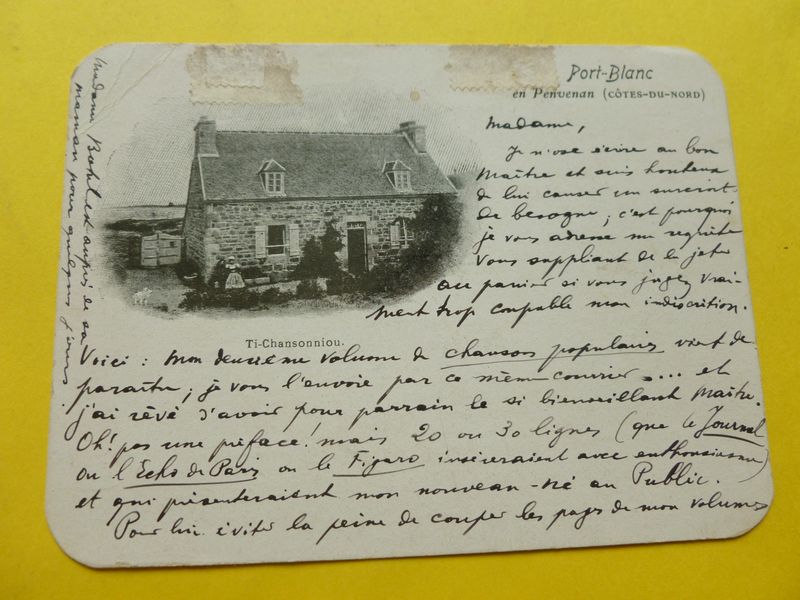 Port-Blanc
en Penvenan (CÔTES-DU-NORD)
Madame,
Je n'ose écrire au bon
Maître et suis honteux
de lui causer un surcroît
de besogne; c'est pourquoi
je vous adresse ma requête
vous suppliant de la jeter
au panier si vous jugez vrai-
ment trop coupable mon indiscrétion.
Ti-Chansonniou.
Voici : Mon deuxième volume de chansons populaires vient de
paraître; je vous l'envoie par ce même courrier.... et
j'ai rêvé d'avoir pour parrain le si bienveillant Maître.
Oh! pas une préface! mais 20 ou 30 lignes (que le Journal
ou l'Echo de Paris ou le Figaro inséreraient avec enthousiasme)
et qui présenteraient mon nouveau-né au Public.
Pour lui éviter la peine de couper les pages de mon volumes
Madame Botrel est auprès de sa
maman pour quelques jours